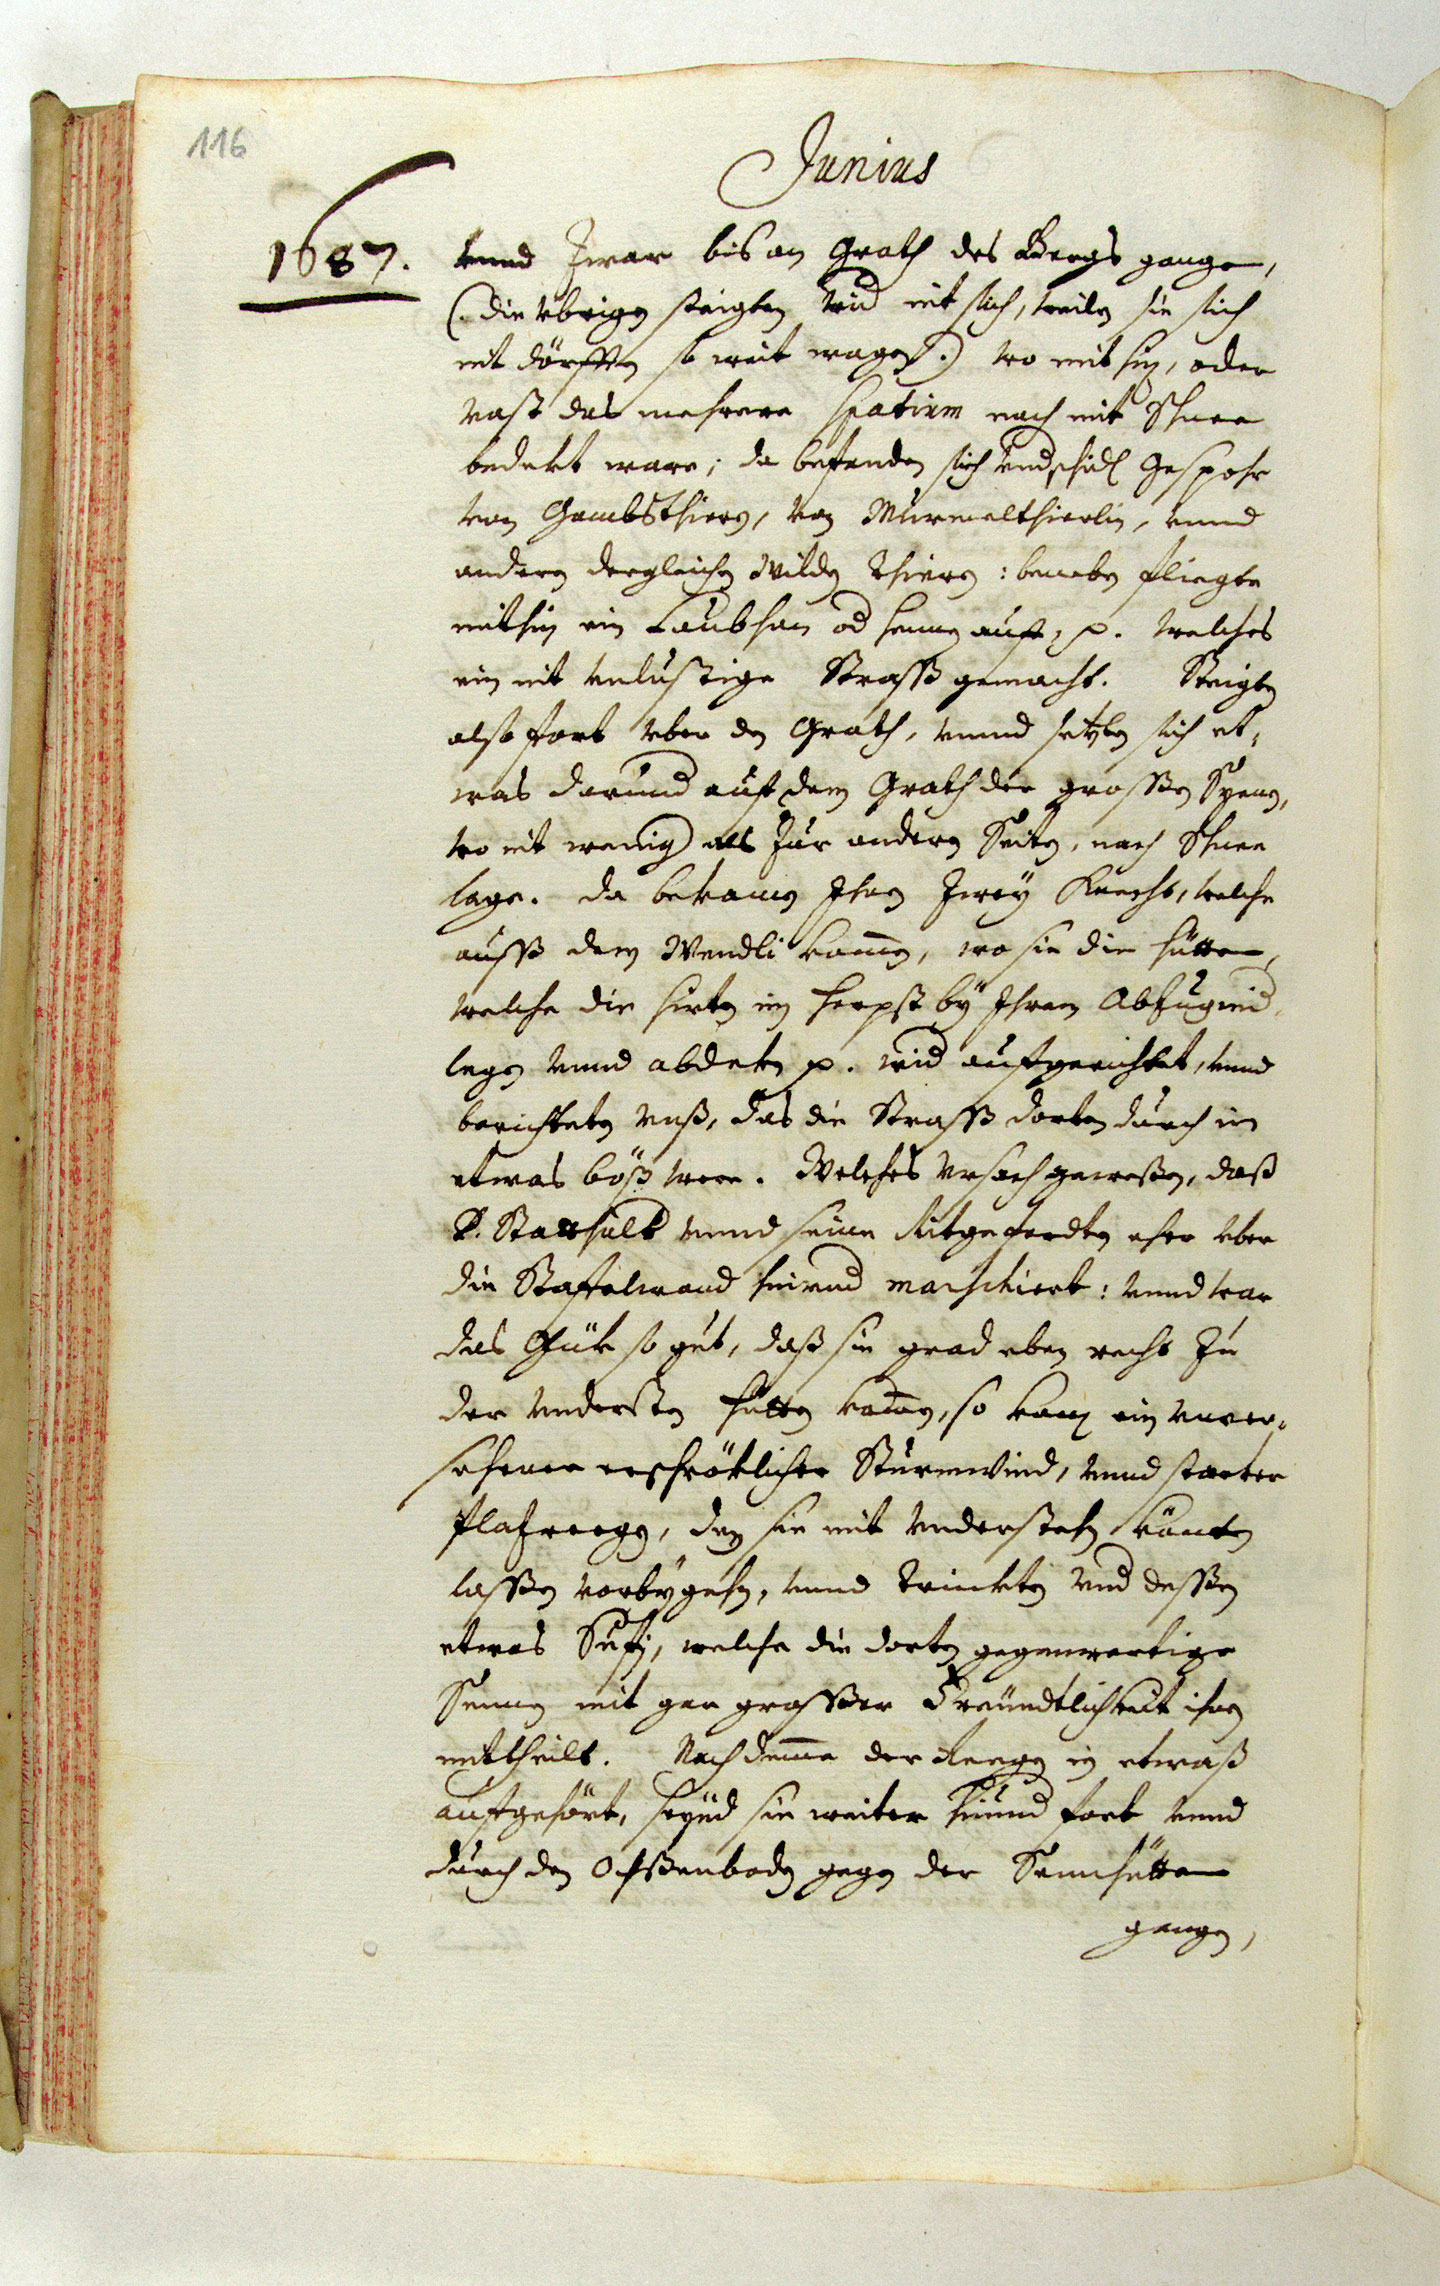 116
Junius
1687.
vnnd zwar bis an Grath des Bergs gangen,
(. die vbrigen steigten nit sich, weilen sie sich
nit dörfften so weit wagen .) wo mithin, oder
vast das mehrere spatium noch mit Schnee
bedekt ware; da befanden sich vndschidl Gespohr
von Gambsthieren, von Murmelthierlin, vnnd
anderen dergleichen Wilden Thieren: beneben fliegte
mithin ein Laubhan od hennen auff, p. welches
ein nit vnlustige Strass gemacht. Steigten
also fort vber den Grath, vnnd setzten sich et-
was darund auff dem Grath der grossen Synen,
wo nit wenig als zur anderen Seiten, noch Schnee
lage. Da bekamen Ihnen zwey Knecht, welche
auss dem Wendli kamen, wo sie die hütten,
welche die hirten im herpst by Ihrem Abzug nid
legen vnnd abdeken p. wid auffgerichtet, vnnd
berichteten vnß, das die Strass dorten durch im
etwas böß were. Welches vrsach gewesen, daß
P. Statthalt vnnd seine Mitgeferdten eher vber
die Staffelwand hinund marschiert: vnnd war
das Glük so gut, daß sie grad eben recht zu
der vndersten hütten kamen, so kam ein vnver-
sehener erschröklicher Sturmwind, vnnd starker
Plazreegen, den sie mit vnderstehen könten
lassen vorbygehen, vnnd trinkten vnd dessen
etwas Sufi, welche die dorten gegenwertige
Sennen mit gar grosser Freündtlichkeit ihnen
mittheilt. Nach deme der Reegen in etwaß
auffgehört, seynd sie weiter hinund fort vnnd
durch den Ochßenboden gegen der Sennhütten
gangen,